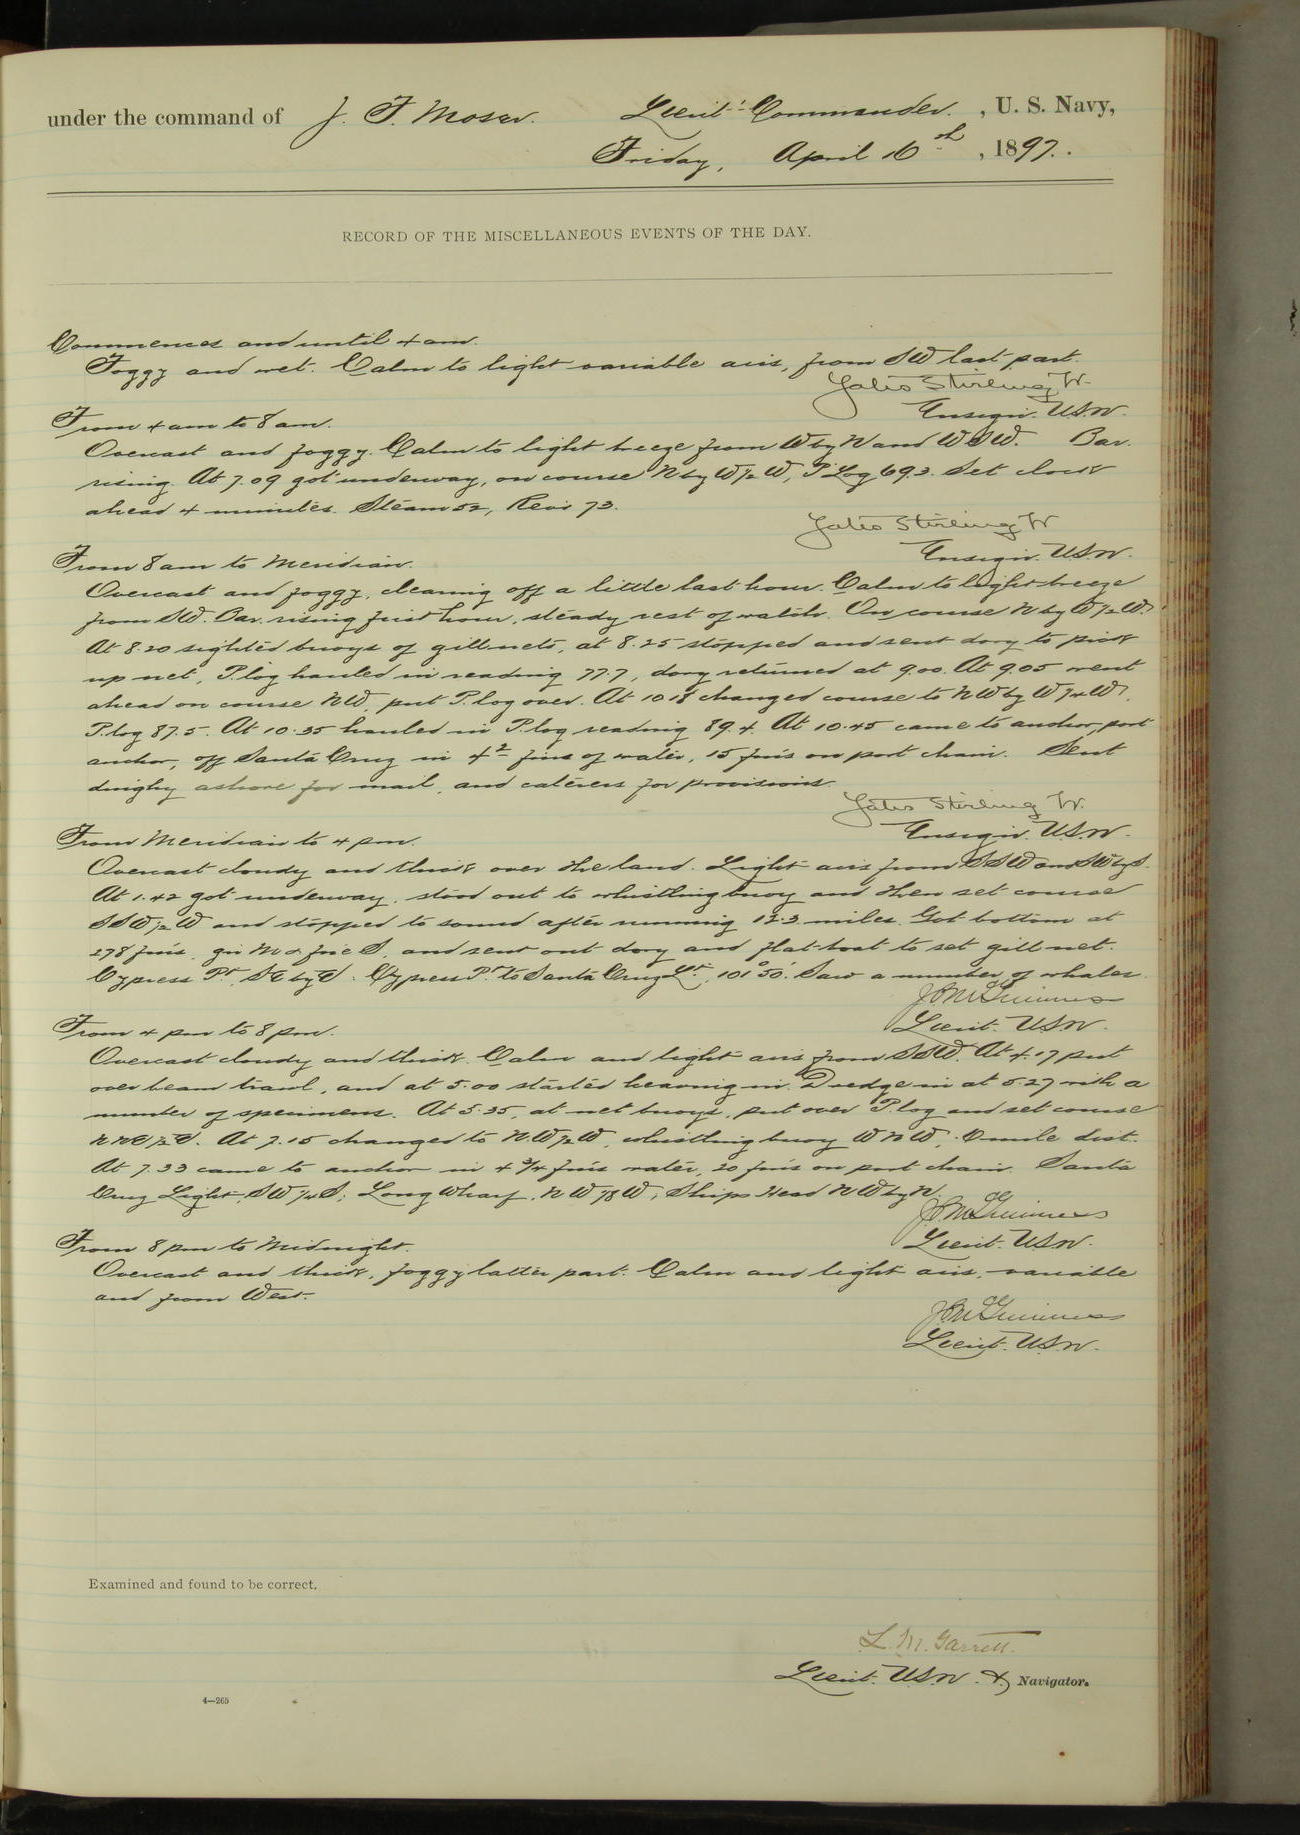 under the command of J. F. Moser. Lieut. Commander. , U. S. Navy,
Friday, April 16th , 1897.
RECORD OF THE MISCELLANEOUS EVENTS OF THE DAY.
Commences and until 4 am.
Foggy and wet. Calm to light variable airs, from SW last part.
Yates Stirling Jr.
Ensign. U.S.N.
From 4 am to 8 am.
Overcast and foggy. Calm to light breeze from W by N and WSW. Bar.
rising. At 7.09 got underway, on course N by W ½ W, P. Log 69.3. Set clock
ahead 4 minutes. Steam 52, Revs 73.
Yates Stirling Jr
Ensign. U.S.N.
From 8 am to Meridian.
Overcast and foggy, clearing off a little last hour. Calm to light breeze
from SW. Bar. rising first hour, steady rest of watch. On course N by W ½ W.
At 8.20 sighted buoys of gill nets, at 8.25 stopped and sent dory to pick
up net, P. log hauled in reading 77.7, dory returned at 9.00. At 9.05 went
ahead on course NW, put P. log over. At 10.18 changed course to NW by W ¼ W.
P. log 87.5. At 10.35 hauled in P. log reading 89.4. At 10.45 came to anchor, port
anchor, off Santa Cruz in 4 2 fms of water, 15 fms on port chain. Sent
dinghy ashore for mail, and caterers for provisions.
Yates Stirling Jr.
Ensign. U.S.N.
From Meridian to 4 pm.
Overcast cloudy and thick over the land. Light airs from SSW and SW by S.
At 1.42 got underway, stood out to whistling buoy and then set course
SSW ½ W and stopped to sound after running 12.3 miles. Got bottom at
278 fms, gn M & fne S. and sent out dory and flat-boat to set gill net.
Cypress Pt, SE by E. Cypress Pt to Santa Cruz Lt, 101° 50'. Saw a number of whales.
J. B. McGuinness
Lieut. U.S.N.
From 4 pm to 8 pm.
Overcast cloudy and thick. Calm and light airs from SSW. At 4.17 put
over beam trawl, and at 5.00 started heaving in. Dredge in at 5.27 with a
number of specimens. At 5.35, at net buoys, put over P. log and set course
NNE ½ E. At 7.15 changed to NW ½ W, whistling buoy WNW, mile dist.
At 7.33 came to anchor in 4 ¾ fms water, 20 fms on port chain. Santa
Cruz Light, SW ¼ S; Long Wharf, NW ⅞ W, Ships Head NW by N.
J. B. McGuinness
Lieut. U.S.N.
From 8 pm to Midnight.
Overcast and thick, foggy latter part. Calm and light airs, variable
and from West.
J. B. McGuinness
Lieut. U.S.N.
Examined and found to be correct.
L. M. Garrett.
Lieut. U.S.N. & Navigator.
4—265